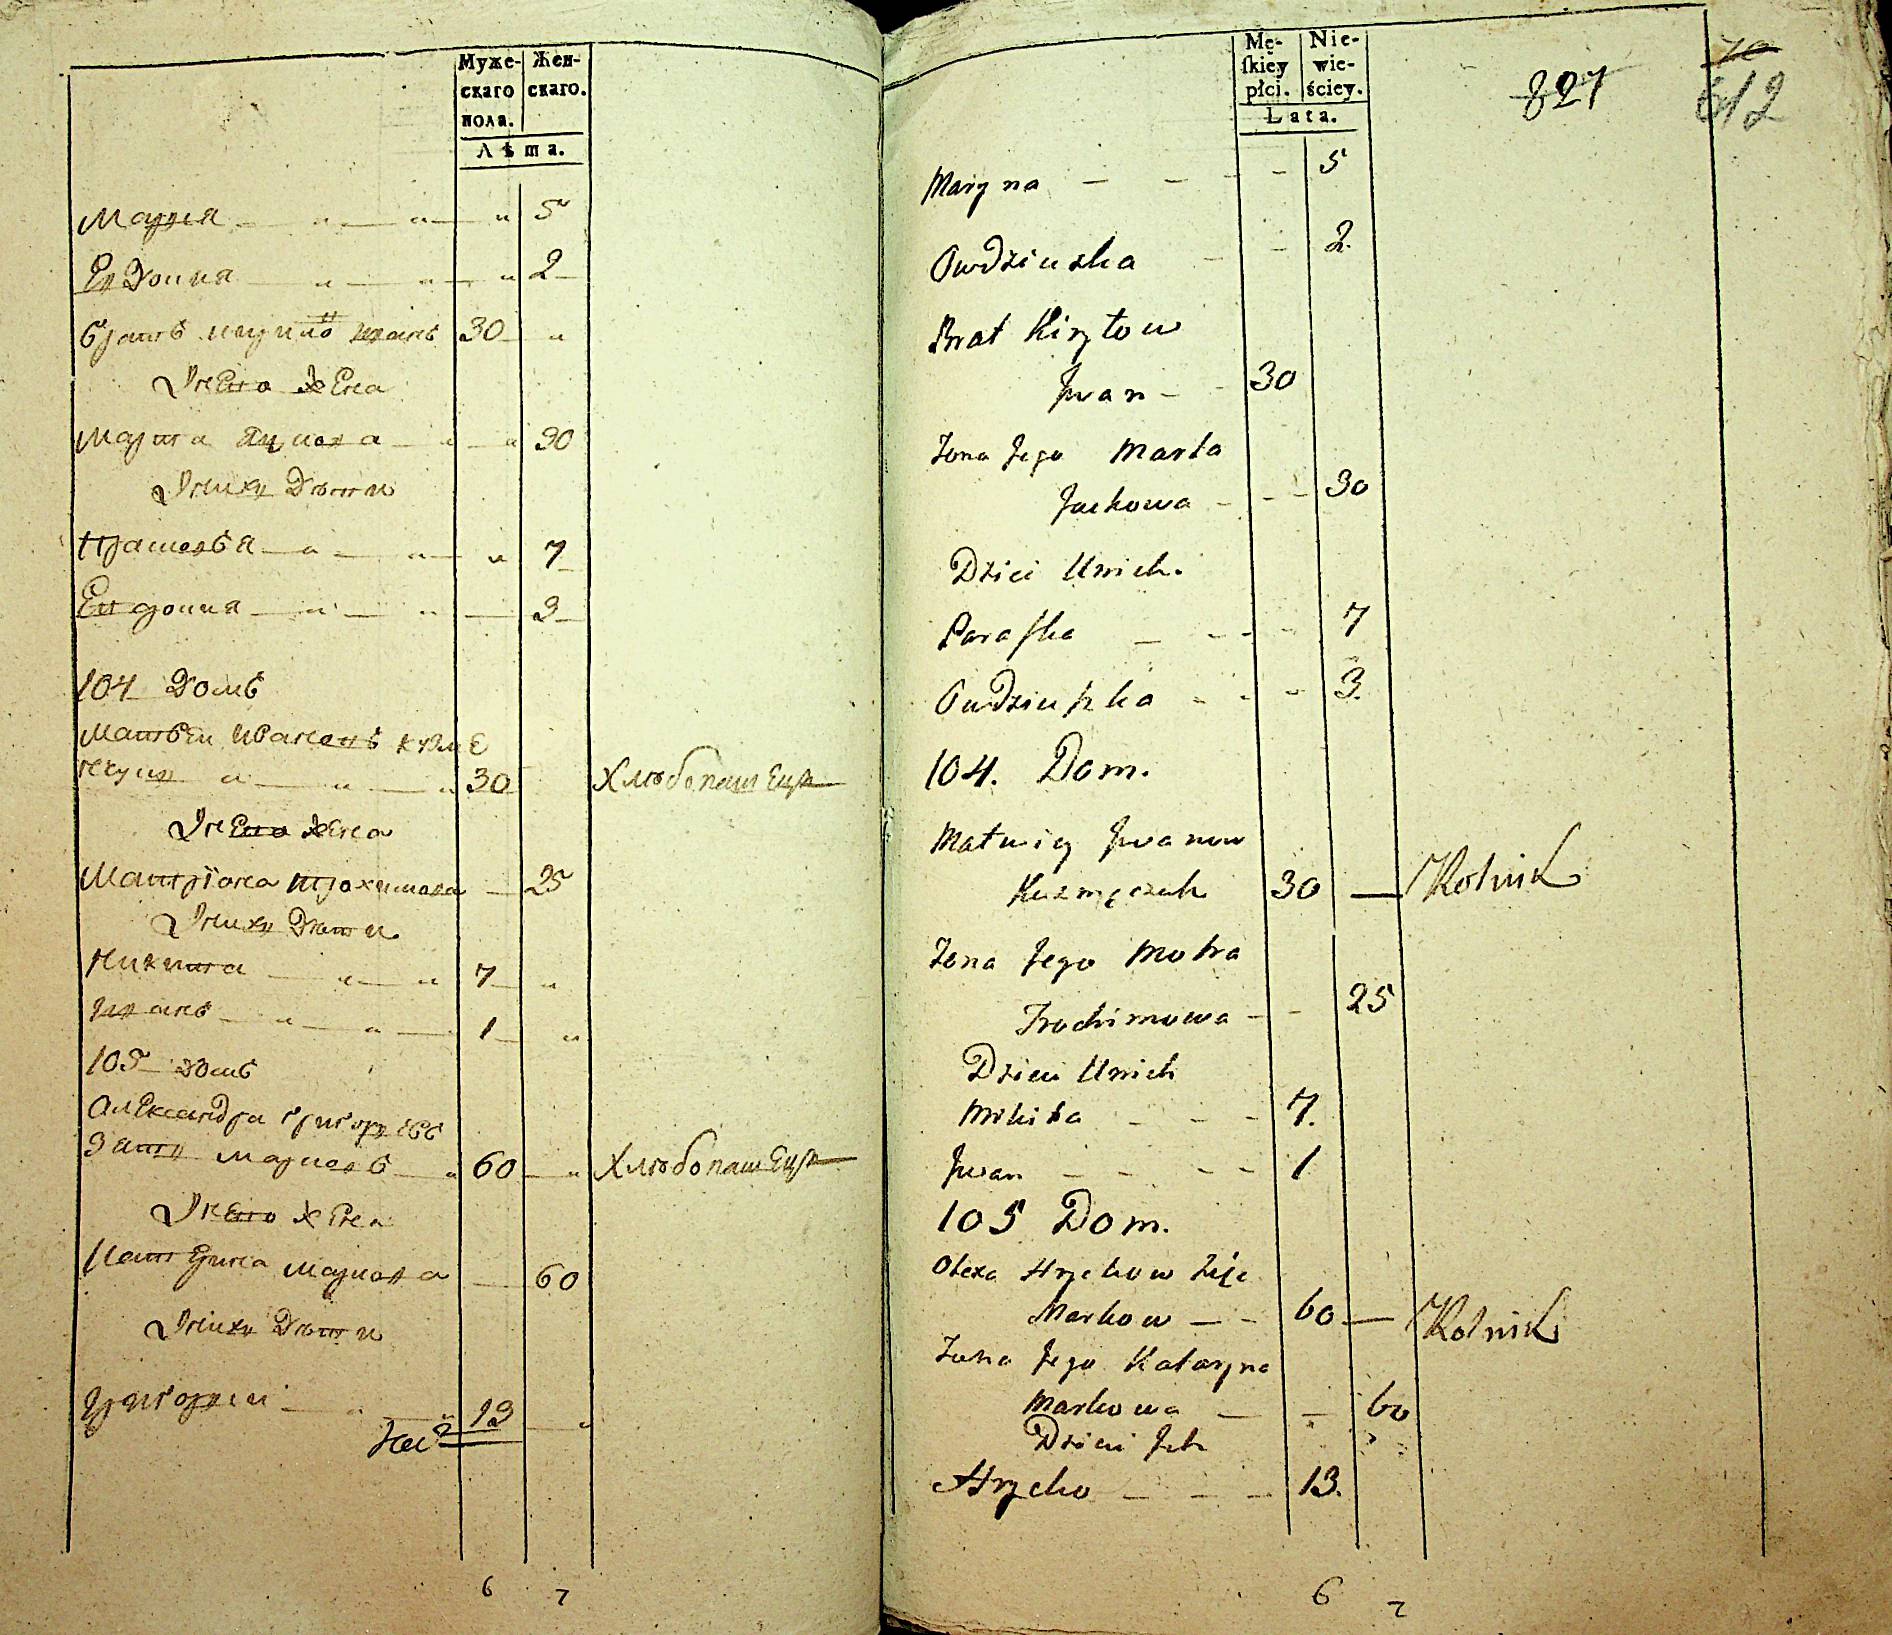 Муже-
скаго
пола.
Жен-
скаго.
Лѣта.
Марья 5
Евдоция 2
братъ Иванъ 30
Жена
Марта Яцкова 30
Дѣти
Прасковья 7
Евдокия 3
104 Домъ
Матвей Ивановъ Кузме
30 Хлѣбопашецъ
Жена
Матрiона Трохимова 25
Дѣти
Никита 7
Иванъ 1
105 Домъ
Александра Григорьевъ
Зять Марковъ 60 Хлѣбопашецъ
Жена
Катерина Маркова 60
Дѣти
Григорий 13
6 7
Mę-
ſkiey
płci.
Nie-
wie-
ściey.
Lata.
827
612
Maryna 5
Owdziuszka 2.
Brat Kiryłow
Jwan 30
Zona Jego Marta
Jackowa 30
Dzieci Unich.
Paraſka 7
Owdziuſzka 3.
104. Dom.
Matwiey Jwanow
Kuzmęczuk 30 Rolnik
Zona Jego Motra
Trochimowa 25
Dzieci Unich
Mikita 7.
Jwan 1
105 Dom.
Olexa Hryckow Zięć
Markow 60 Rolnik
Zona Jego Kataryna
Markowa 60
Dzieci Ich
Hrycko 13.
6 7